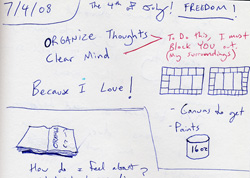 7/4/08
The 4th of July! FREEDOM!
ORGANIZE Thoughts
Clear Mind
Because I Love!
To Do this, I must
Block YOU out
(My surroundings)
- Canvas to get
- Paints
16oz
How do I Feel about